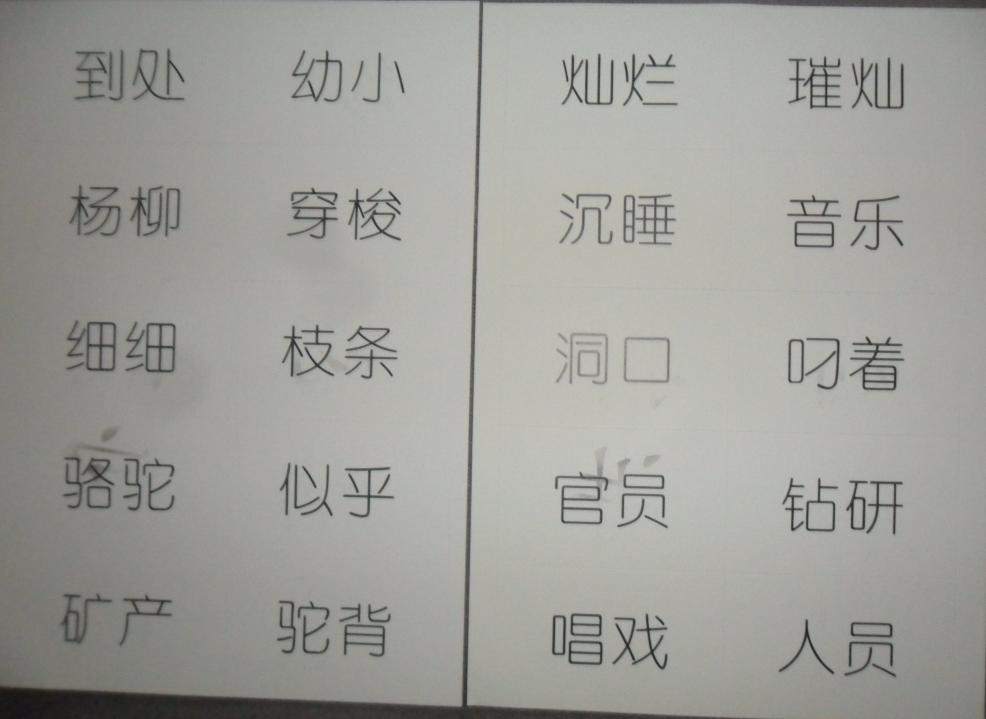 到处 幼小
杨柳 穿梭
细细 枝条
骆驼 似乎
矿产 驼背
灿烂 璀灿
沉睡 音乐
洞口 叼着
官员 钻研
唱戏 人员